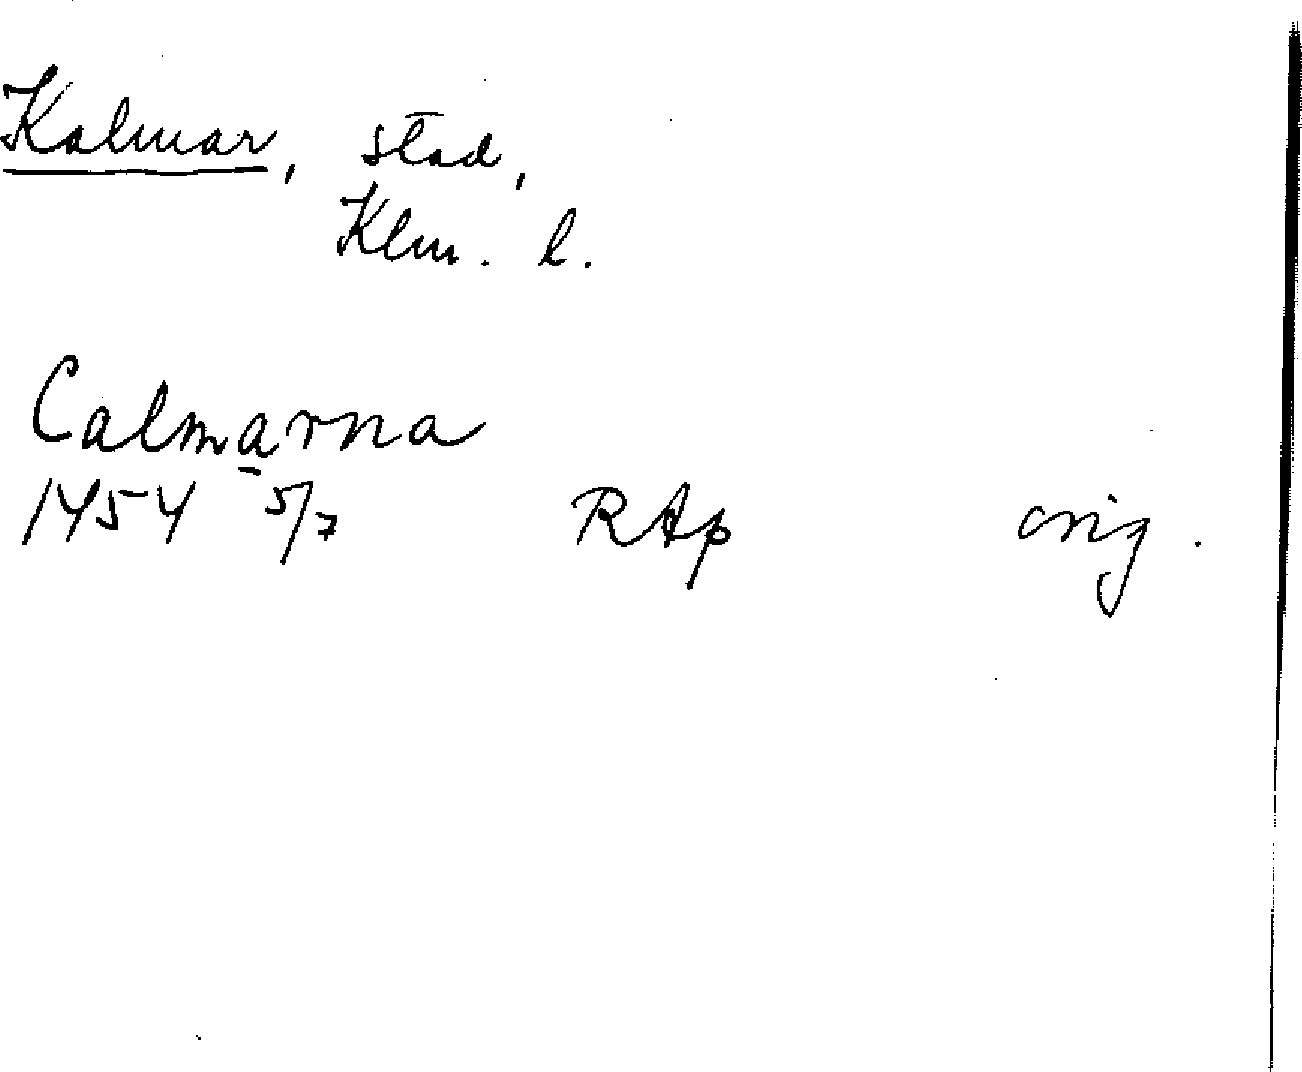 Kalmar, stad,
Klm. l.
Calmarna
1454 5/7 RAp orig.